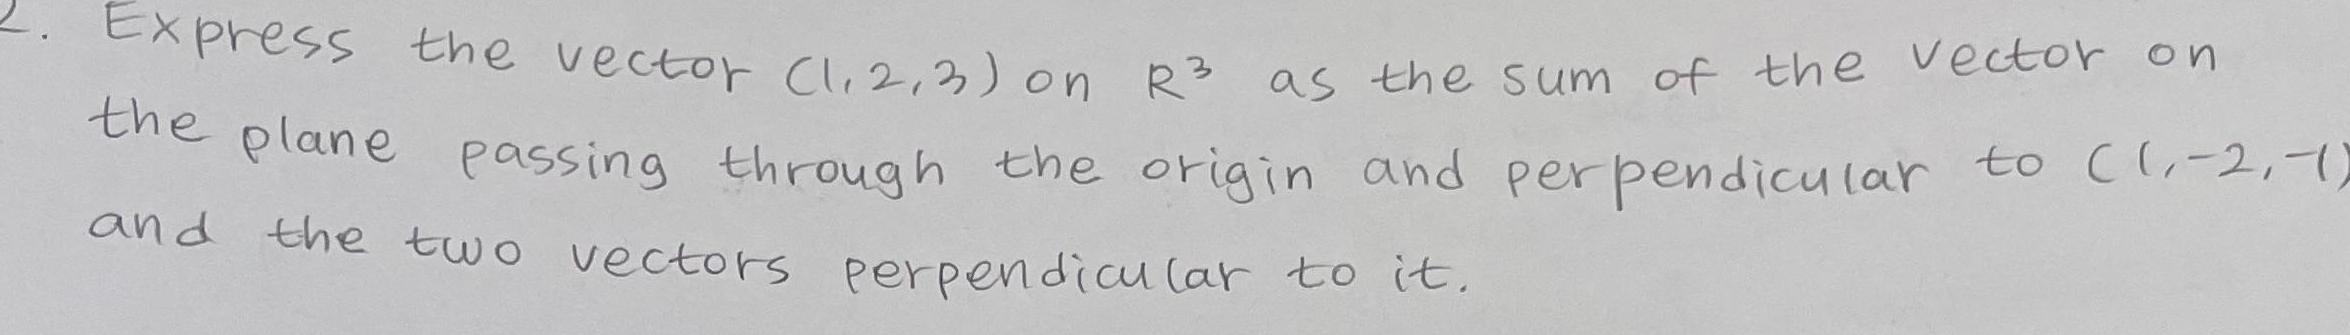 2. Express the vector (1,2,3) on R³ as the sum of the vector on
the plane passing through the origin and perpendicular to (1,-2,-1)
and the two vectors perpendicular to it.